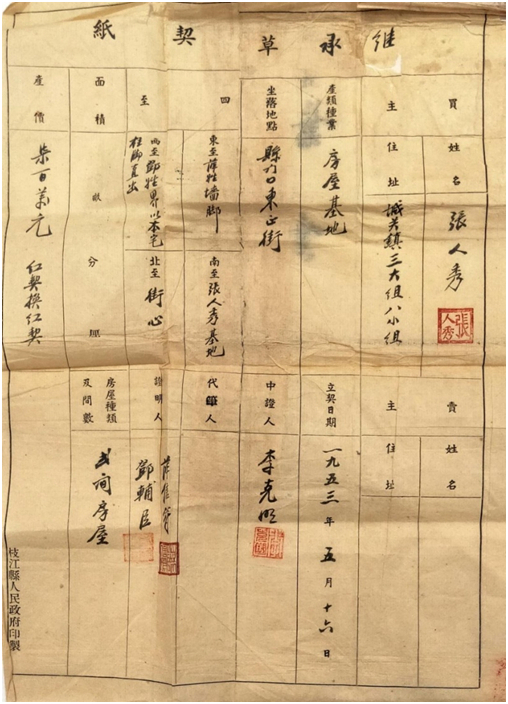 继承草契紙
買主
姓名
張人秀
張人秀
住址
城关鎮三大组八小组
產業種類
房屋基地
坐落地點
縣门口東正街
四至
東至薛姓墙脚
南至張人秀基地
西至鄧姓界以本宅柱脚直出
北至街心
面積
畝
分
厘
產價
柒百萬元
红契换红契
賣主
姓名
住址
立契日期
一九五三年五月十六日
中證人
李克明
代筆人
證明人
鄧輔臣
房屋種類及間數
间房屋
枝江縣人民政府印製